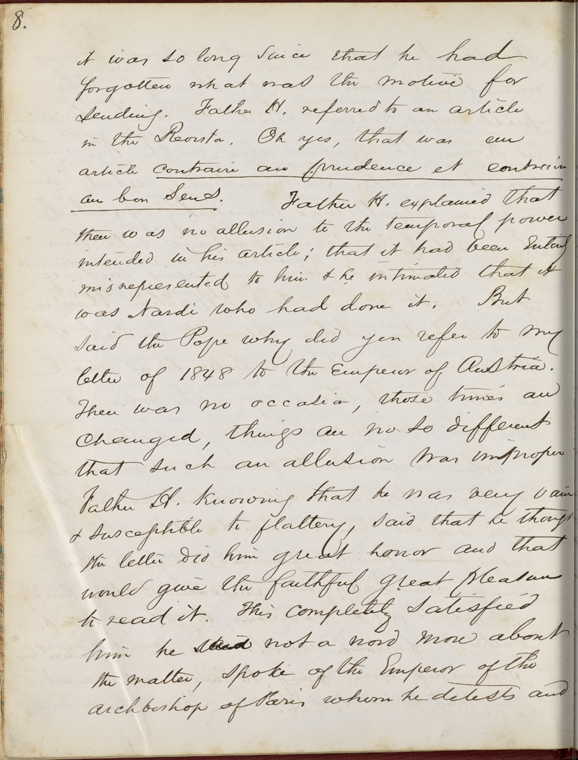 8.
it was so long since that he had
forgotten what was the motive for
sending. Father H. referred to an article
in the Revista. Oh yes, that was an
article contraire au prudence et contraire
au bon sens. Father H. explained that
there was no allusion to the temporal power
intended in his article; that it had been entirely
misrepresented to him & he intimated that it
was Nardi who had done it. But
said the Pope why did you refer to my
letter of 1848 to the Emperor of Austria.
There was no occasion, those times are
changed, things are no so different
that such an allusion was improper
Father H. knowing that he was very vain
& susceptible to flattery, said that he thought
the letter did him great honor and that
would give the faithful great pleasure
to read it. This completely satisfied
him he said not a word more about
the matter, spoke of the Emperor of the
archbishop of Paris whom he detests and